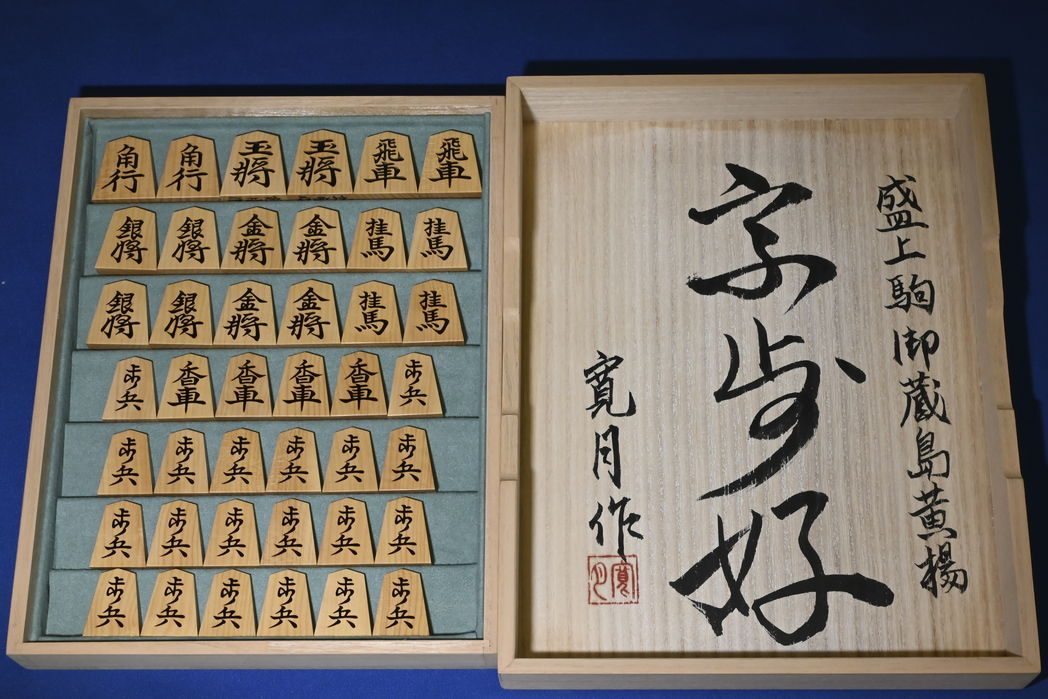 角行 角行 玉将 玉将 飛車 飛車
銀将 銀将 金将 金将 桂馬 桂馬
銀将 銀将 金将 金将 桂馬 桂馬
歩兵 香車 香車 香車 香車 歩兵
歩兵 歩兵 歩兵 歩兵 歩兵 歩兵
歩兵 歩兵 歩兵 歩兵 歩兵 歩兵
歩兵 歩兵 歩兵 歩兵 歩兵 歩兵
盛上駒御蔵島黄楊
宗歩好
寛月作
寛月